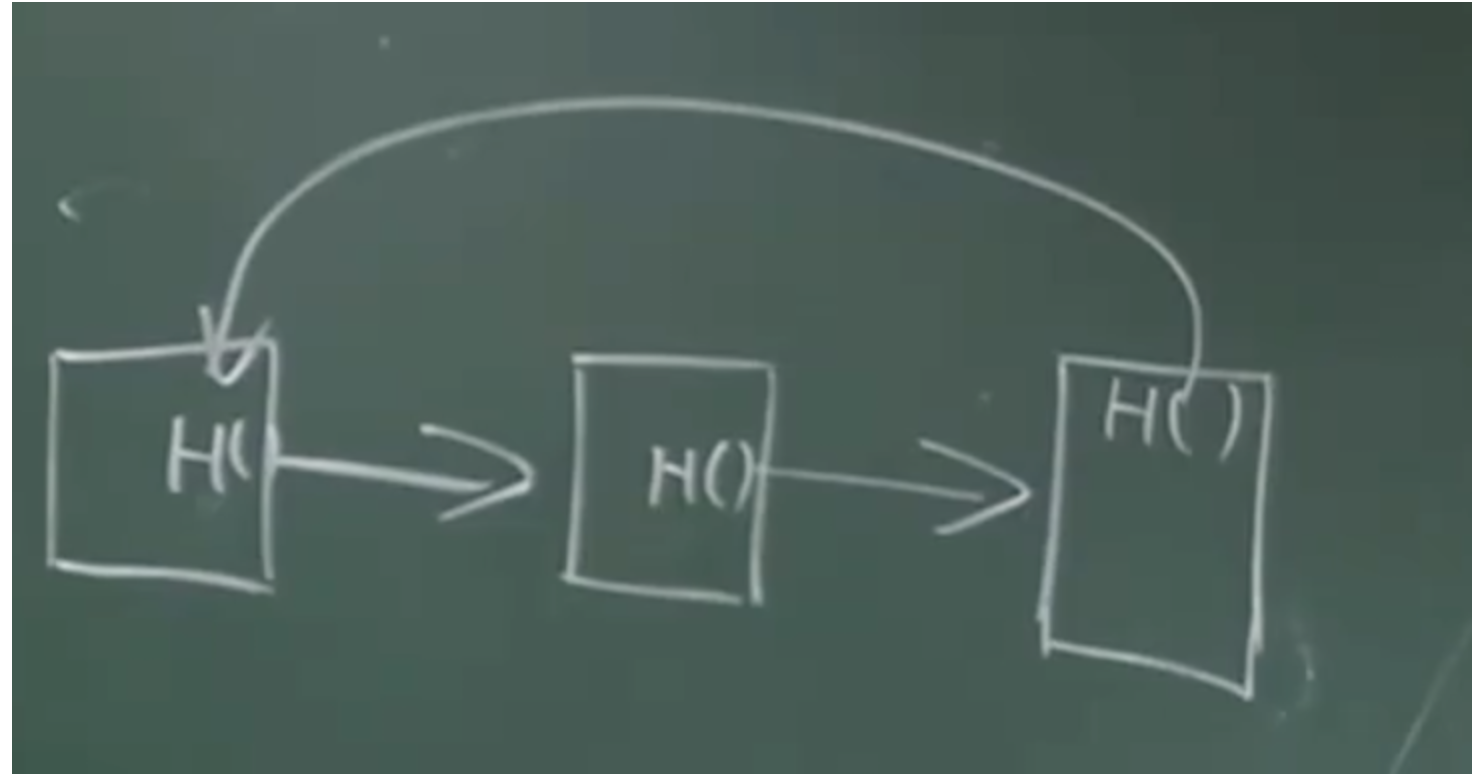 H()
H()
H()